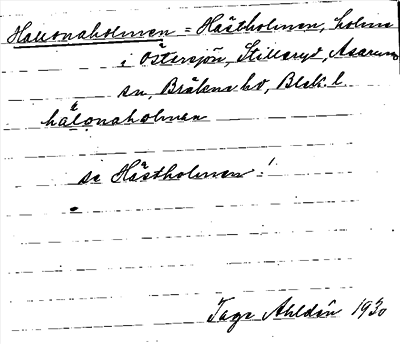 Hallonaholmen = Hästholmen, holme
i Östersjön, Stillaryd, Asarums
sn, Bräkne hd, Blek. l.
hálonaholman
se Hästholmen!
Tage Ahldén 1930